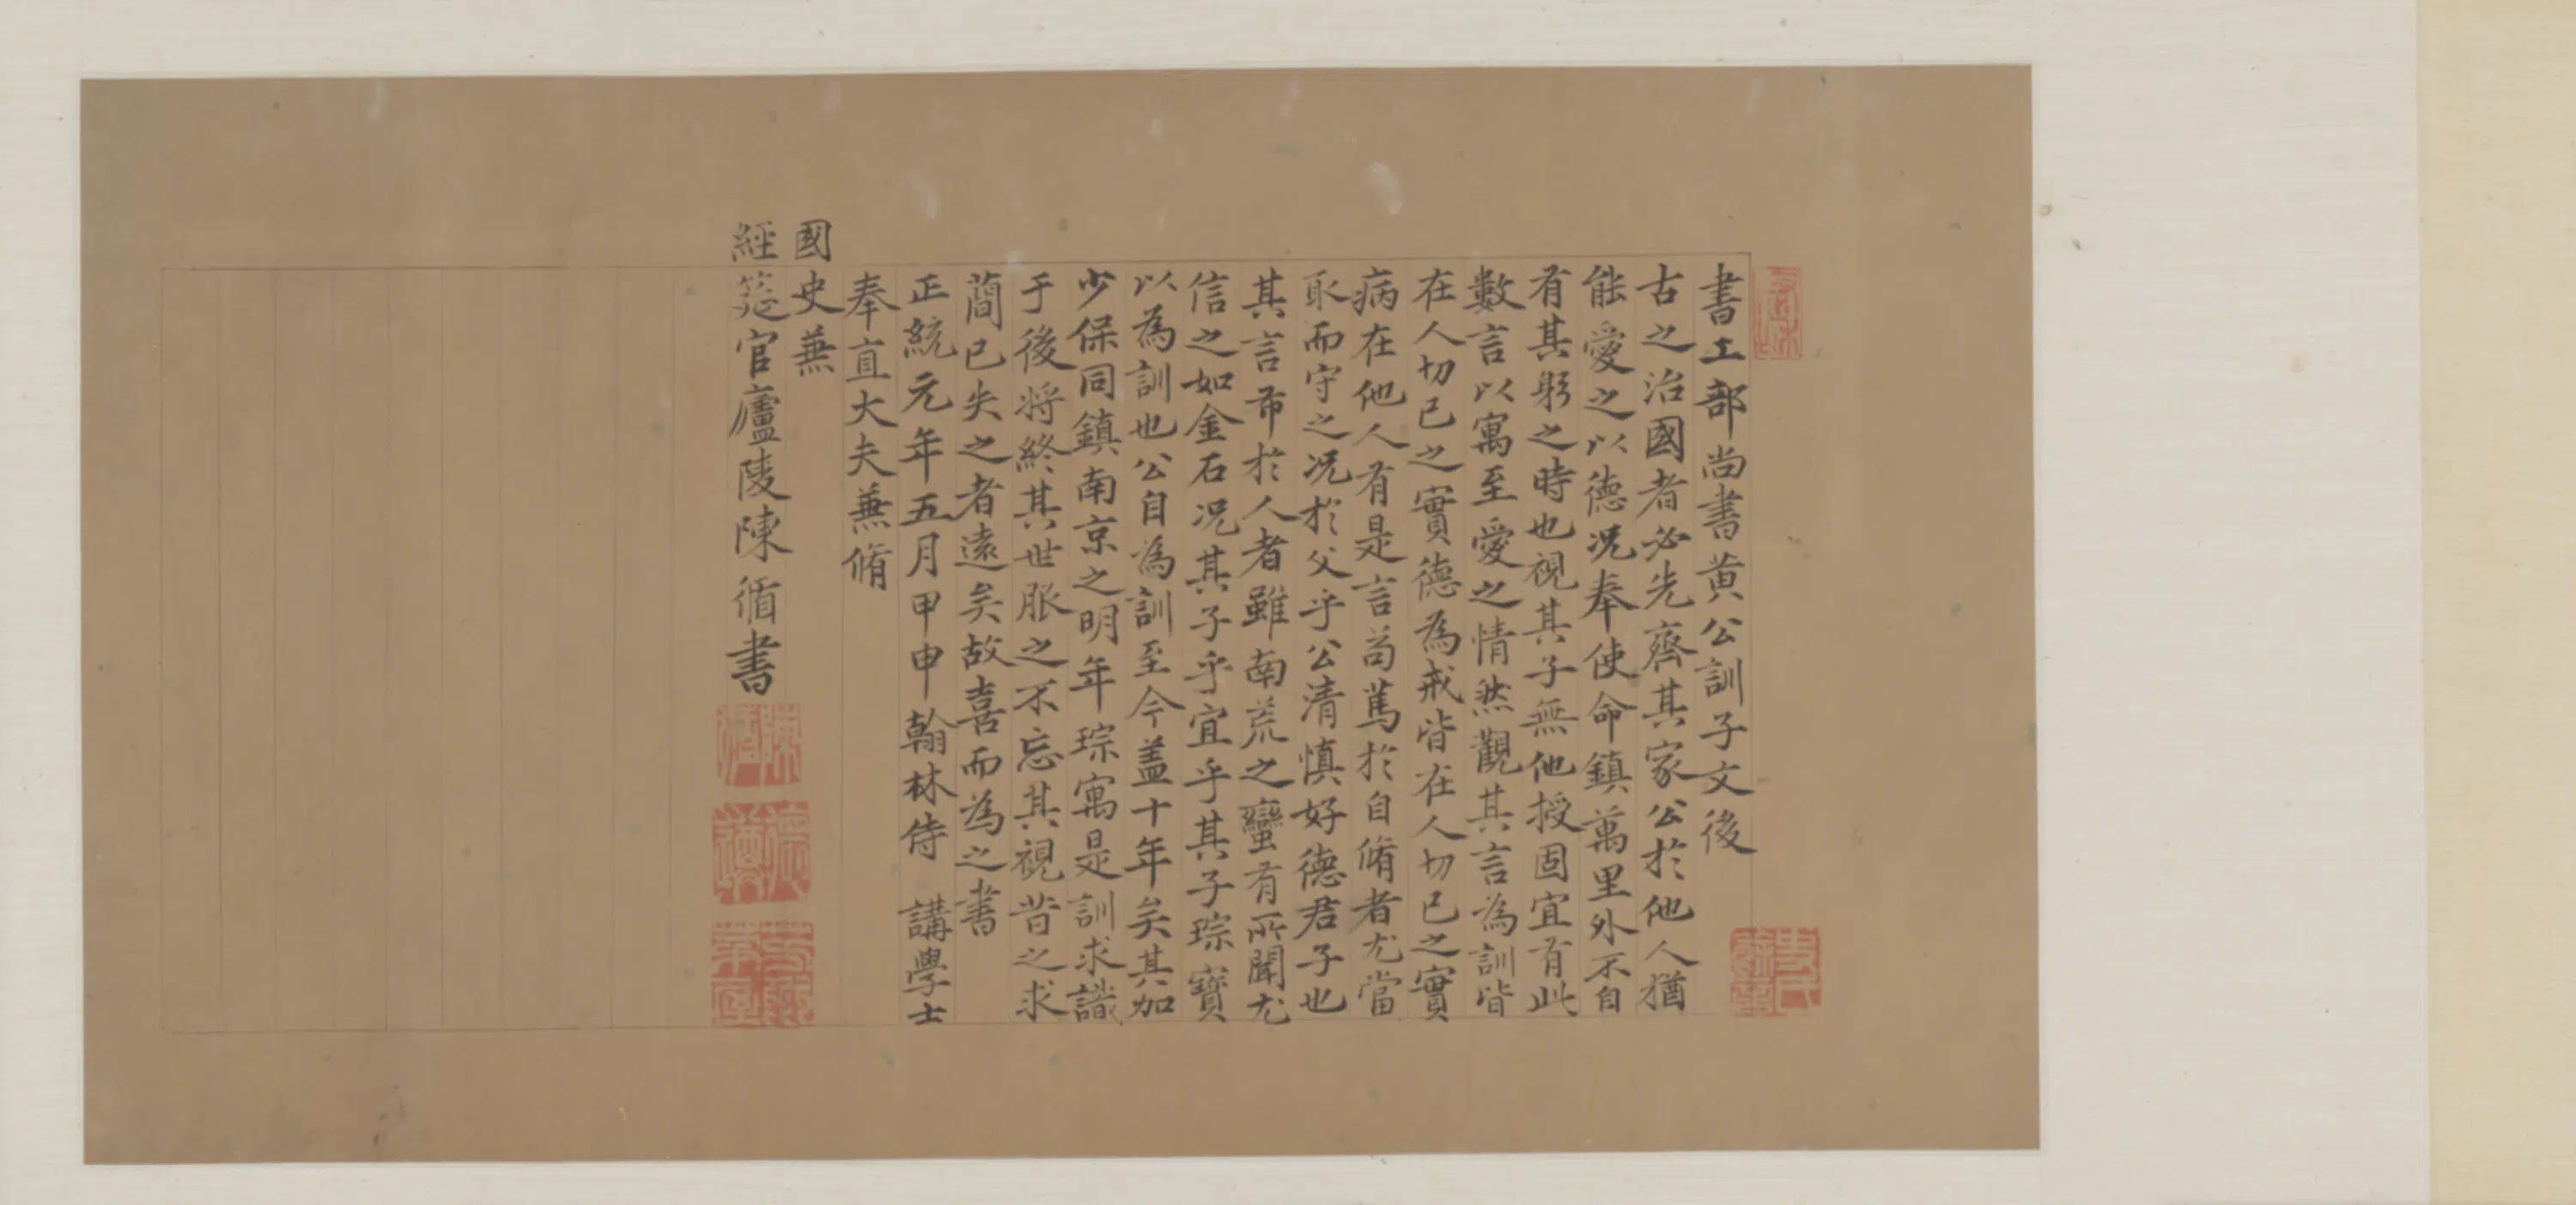 書工部尚書黄公訓子文後
古之治國者必先齊其家公於他人猶
能愛之以德况奉使命鎮萬里外不自
有其躬之時也視其子無他授固宜有此
數言以寓至愛之情然觀其言為訓皆
在人切己之實德為戒皆在人切己之實
病在他人有是言苟篤於自脩者尤當
取而守之况於父乎公清慎好德君子也
其言布於人者雖南荒之蠻有所聞尤
信之如金石况其子乎宜乎其子琮寶
以為訓也公自為訓至今盖十年矣其加
少保同鎮南京之明年琮寓是訓求識
于後将終其世服之不忘其視昔之求
蕳已失之者遠矣故喜而為之書
正統元年五月甲申翰林侍 講學士
奉直大夫兼脩
國史兼
經筵官廬陵陳循書
陳循